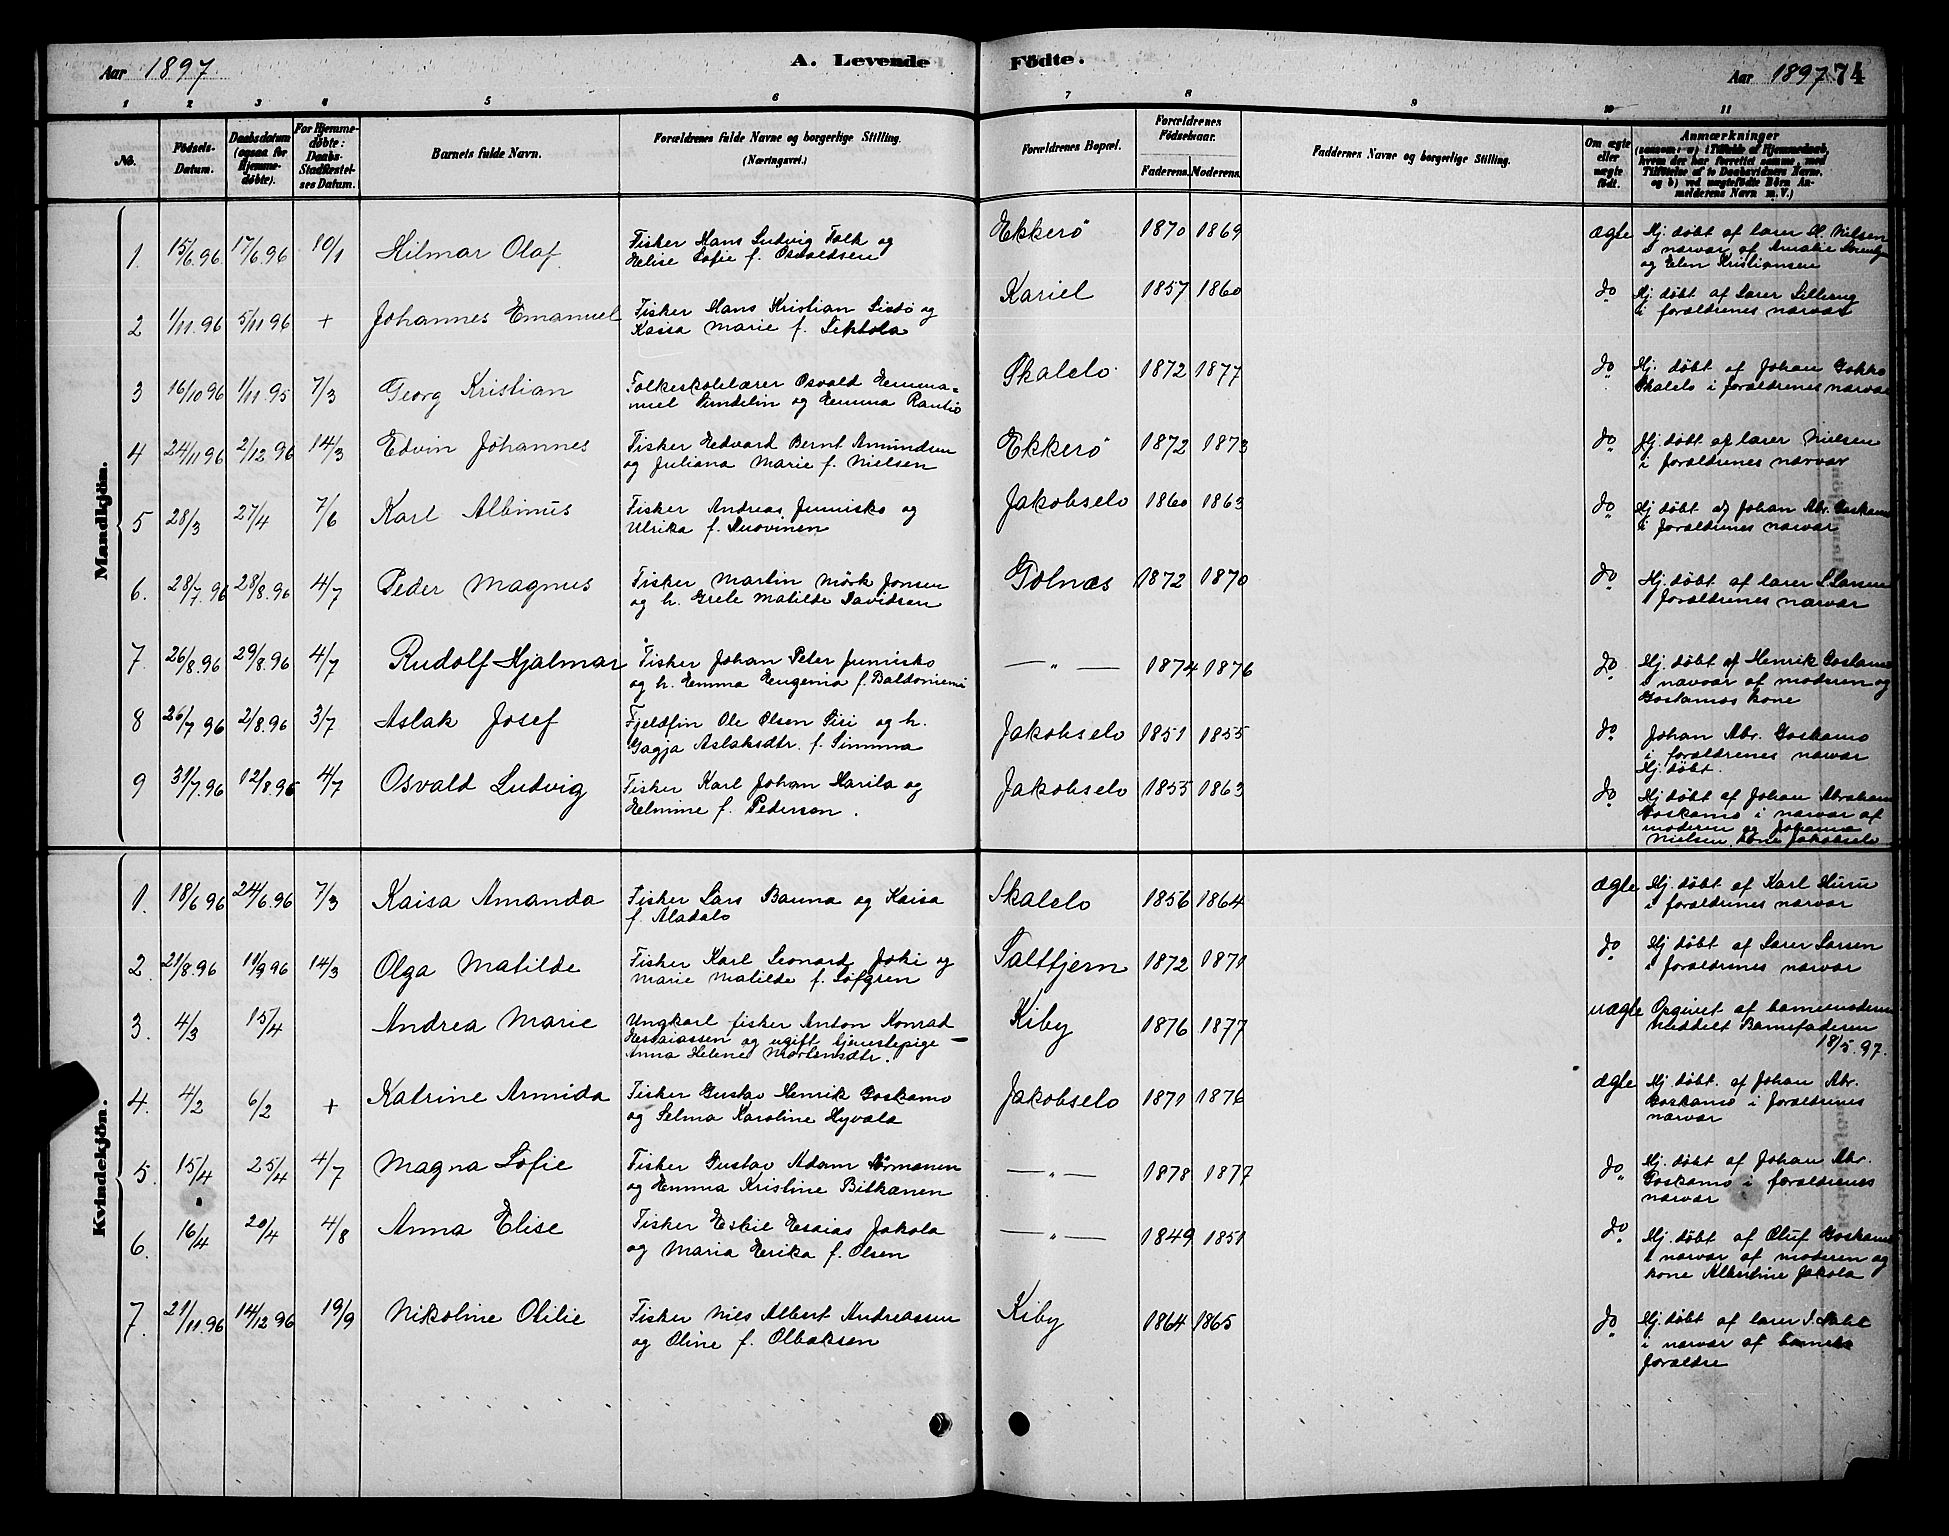 Aar 1897. A. Levende Födte. Aar 1897. 74
1 2 3 4 5 6 7 8 9 10 11
No. Födsels-Datum. Daabsdatum (ogsaa for Hjemme-döbte). For Hjemme-döbte: Daabs-Stadfæstel-ses Datum. Barnets fulde Navn. Forældrenes fulde Navne og borgerlige Stilling. (Næringsvei.) Forældrenes Bopæl. Forældrenes Födselsaar. Faderens. Moderens. Faddernes Navne og borgerlige Stilling. Om ægte eller uægte födt. Anmærkninger (saasom: a) i Tilfælde af Hjemmedaab, hvem der har forrettet samme, med Tilföielse af to Daabsvidners Navne, og b) ved uægtefödte Börn Anmelderens Navn m. V.)
Mandkjön.
1. 15/6.96 17/6.96 10/1 Hilmar Olaf Fisker Hans Ludvig Falk og
Elise Sofie f. Osvaldsen Ekkerö 1870 1869 ægte Hj. döbt af lærer H. Nielsen
i nærvær af Amalie
og Elen Kristiansen
2 1/11.96 5/11 96 + Johannes Emanuel Fisker Hans Kristian Sisdo og
Kaisa Marie f. Kariel 1857 1860 do Hj. döbt af Lærer Lillerug
i forældrenes nærvær
3 16/10 96 1/11.95 7/3 Georg Kristian Folkeskolelærer Osvald Emma=
nuel Sundelin og Emma Rantio Skalelv 1872 1877 do Hj. döbt af Johan Gokko
Skalelv i forældrenes nærvær
4 24/11 96 2/12 96 14/3 Edvin Johannes Fisker Edvard Bernt Amundsen
og Juliana Marie f. Nielsen Ekkerö 1872 1873 do Hj. döbt af lærer Nielsen
i forældrenes nærvær
5 28/3 27/4 7/6 Karl Albinus Fisker Andreas Junisko og
Ulrika f. Suovinen Jakobselv 1860 1863 do Hj döbt af Johan Abr. Goskamo
i forældrenes nærvær
6. 28/7.96 28/8.96 4/7 Peder Magnus Fisker Martin Mörk Jonsen
og h. Grete Matilde Davidsen Golnæs 1872 1870 do Hj. döbt af lærer L. Larsen
i forældrenes nærvær
7. 26/8.96 29/8.96 4/7 Rudolf Hjalmar Fisker Johan Peter Junisko
og h. Emma Eugenia f. Baldoniemi — " — 1874 1876 do Hj. döbt af Henrik Goskamo
i nævær af moderen og
Goskamos kone
8 26/7 96 2/8.96 3/7 Aslak Josef Fjeldfin Ole Olsen Siri og h.
Gagja Aslaksdtr. f. Simma Jakobselv 1851 1855 do Johan Abr. Goskamo
i forældrenes nærvær
Hj. döbt.
9 31/7.96 12/8.96 4/7 Osvald Ludvig Fisker Karl Johan Harila og
Elmine f. Pederson. Jakobselv 1855 1863 do Hj. döbt af Johan Abraham
Goskamo i nærvær af
moderen og Johanna
Nielsen Jakobselv
Kvindekjön.
1. 18/6 96 24/6.96 7/3 Kaisa Amanda Fisker Lars Bauna og Kaisa
f. Aladalo Skalelv 1856 1864 ægte Hj. döbt af Karl Huru
i forældrenes nærvær
2. 21/8.96 11/9 96 14/3 Olga Matilde Fisker Karl Leonard Joki og
Marie Matilde f. Löfgren Saltfjern 1872 1871 do Hj döbt af Lærer Larsen
i forældrenes nærvær
3. 4/3 15/4 Andrea Marie Ungkarl fisker Anton Konrad
Esaiassen og ugift tjenestepige —
Anna Helene Mortensdtr. Kiby 1876 1877 uægte Opgivet af barnemoderen
Meddelt Barnefaderen
18/5.97.
4. 4/2 6/2 + Katrine Armida Fisker Gustav Henrik Goskamo
og Selma Karoline Hyvala Jakobselv 1871 1876 ægte Hj. döbt. af Johan Abr.
Goskamo i forældrenes
nærvær
5. 15/4 25/4 4/7 Magna Sofie Fisker Gustav Adam Örmänen
og Emma Kristine Bitkanen — " — 1878 1877 do Hj. döbt af Johan Abr.
Goskamo i forældrenes
nærvær
6. 16/4 20/4 4/8 Anna Elise Fisker Eskil Esaias Jakola
og Maria Erika f. Olsen — " — 1849 1851 do Hj. döbt af Oluf Goskamo
i nærvær af moderen og
kone Albertine Jakola
7. 21/11.96 14/12 96 19/9 Nikoline Otilie Fisker Nils Albert Andreassen
og Oline f. Olbaksen Kiby 1864 1865 do Hj. döbt af lærer
i nærvær af barnets
forældre